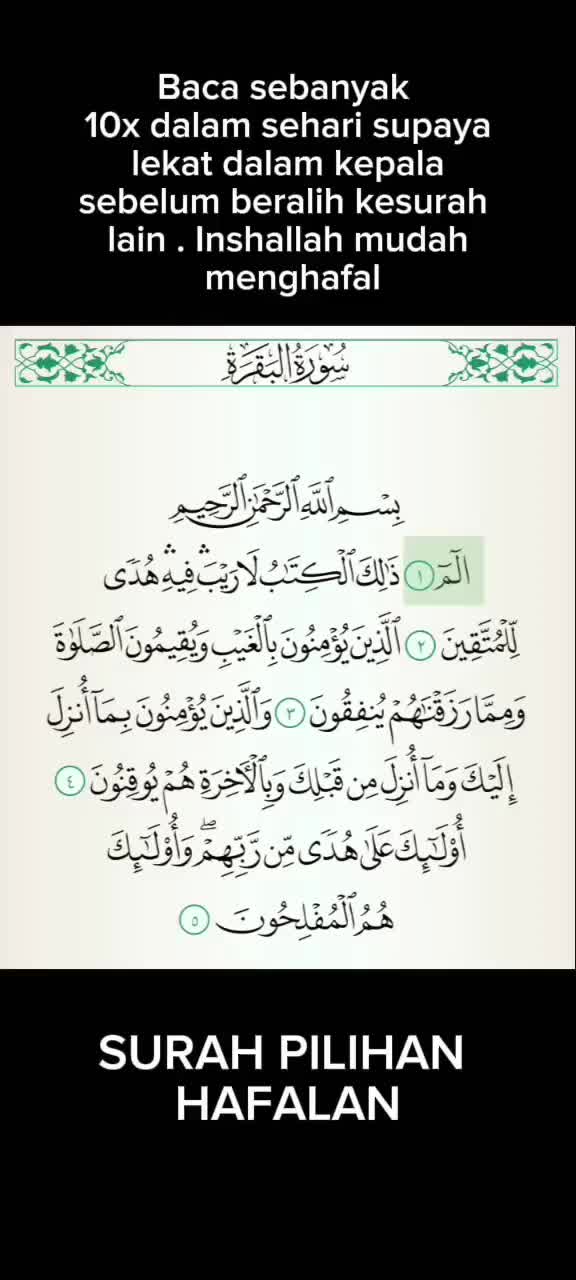 Baca sebanyak
10x dalam sehari supaya
lekat dalam kepala
sebelum beralih kesurah
lain . Inshallah mudah
menghafal
سُورَةُ البَقَرَةِ
بِسْمِ ٱللَّهِ ٱلرَّحْمَٰنِ ٱلرَّحِيمِ
الٓمٓ ١ ذَٰلِكَ ٱلْكِتَٰبُ لَا رَيْبَ ۛ فِيهِ ۛ هُدًى
لِّلْمُتَّقِينَ ٢ ٱلَّذِينَ يُؤْمِنُونَ بِٱلْغَيْبِ وَيُقِيمُونَ ٱلصَّلَوٰةَ
وَمِمَّا رَزَقْنَٰهُمْ يُنفِقُونَ ٣ وَٱلَّذِينَ يُؤْمِنُونَ بِمَآ أُنزِلَ
إِلَيْكَ وَمَآ أُنزِلَ مِن قَبْلِكَ وَبِٱلْأَخِرَةِ هُمْ يُوقِنُونَ ٤
أُو۟لَٰٓئِكَ عَلَىٰ هُدًى مِّن رَّبِّهِمْ ۖ وَأُو۟لَٰٓئِكَ
هُمُ ٱلْمُفْلِحُونَ ٥
SURAH PILIHAN
HAFALAN